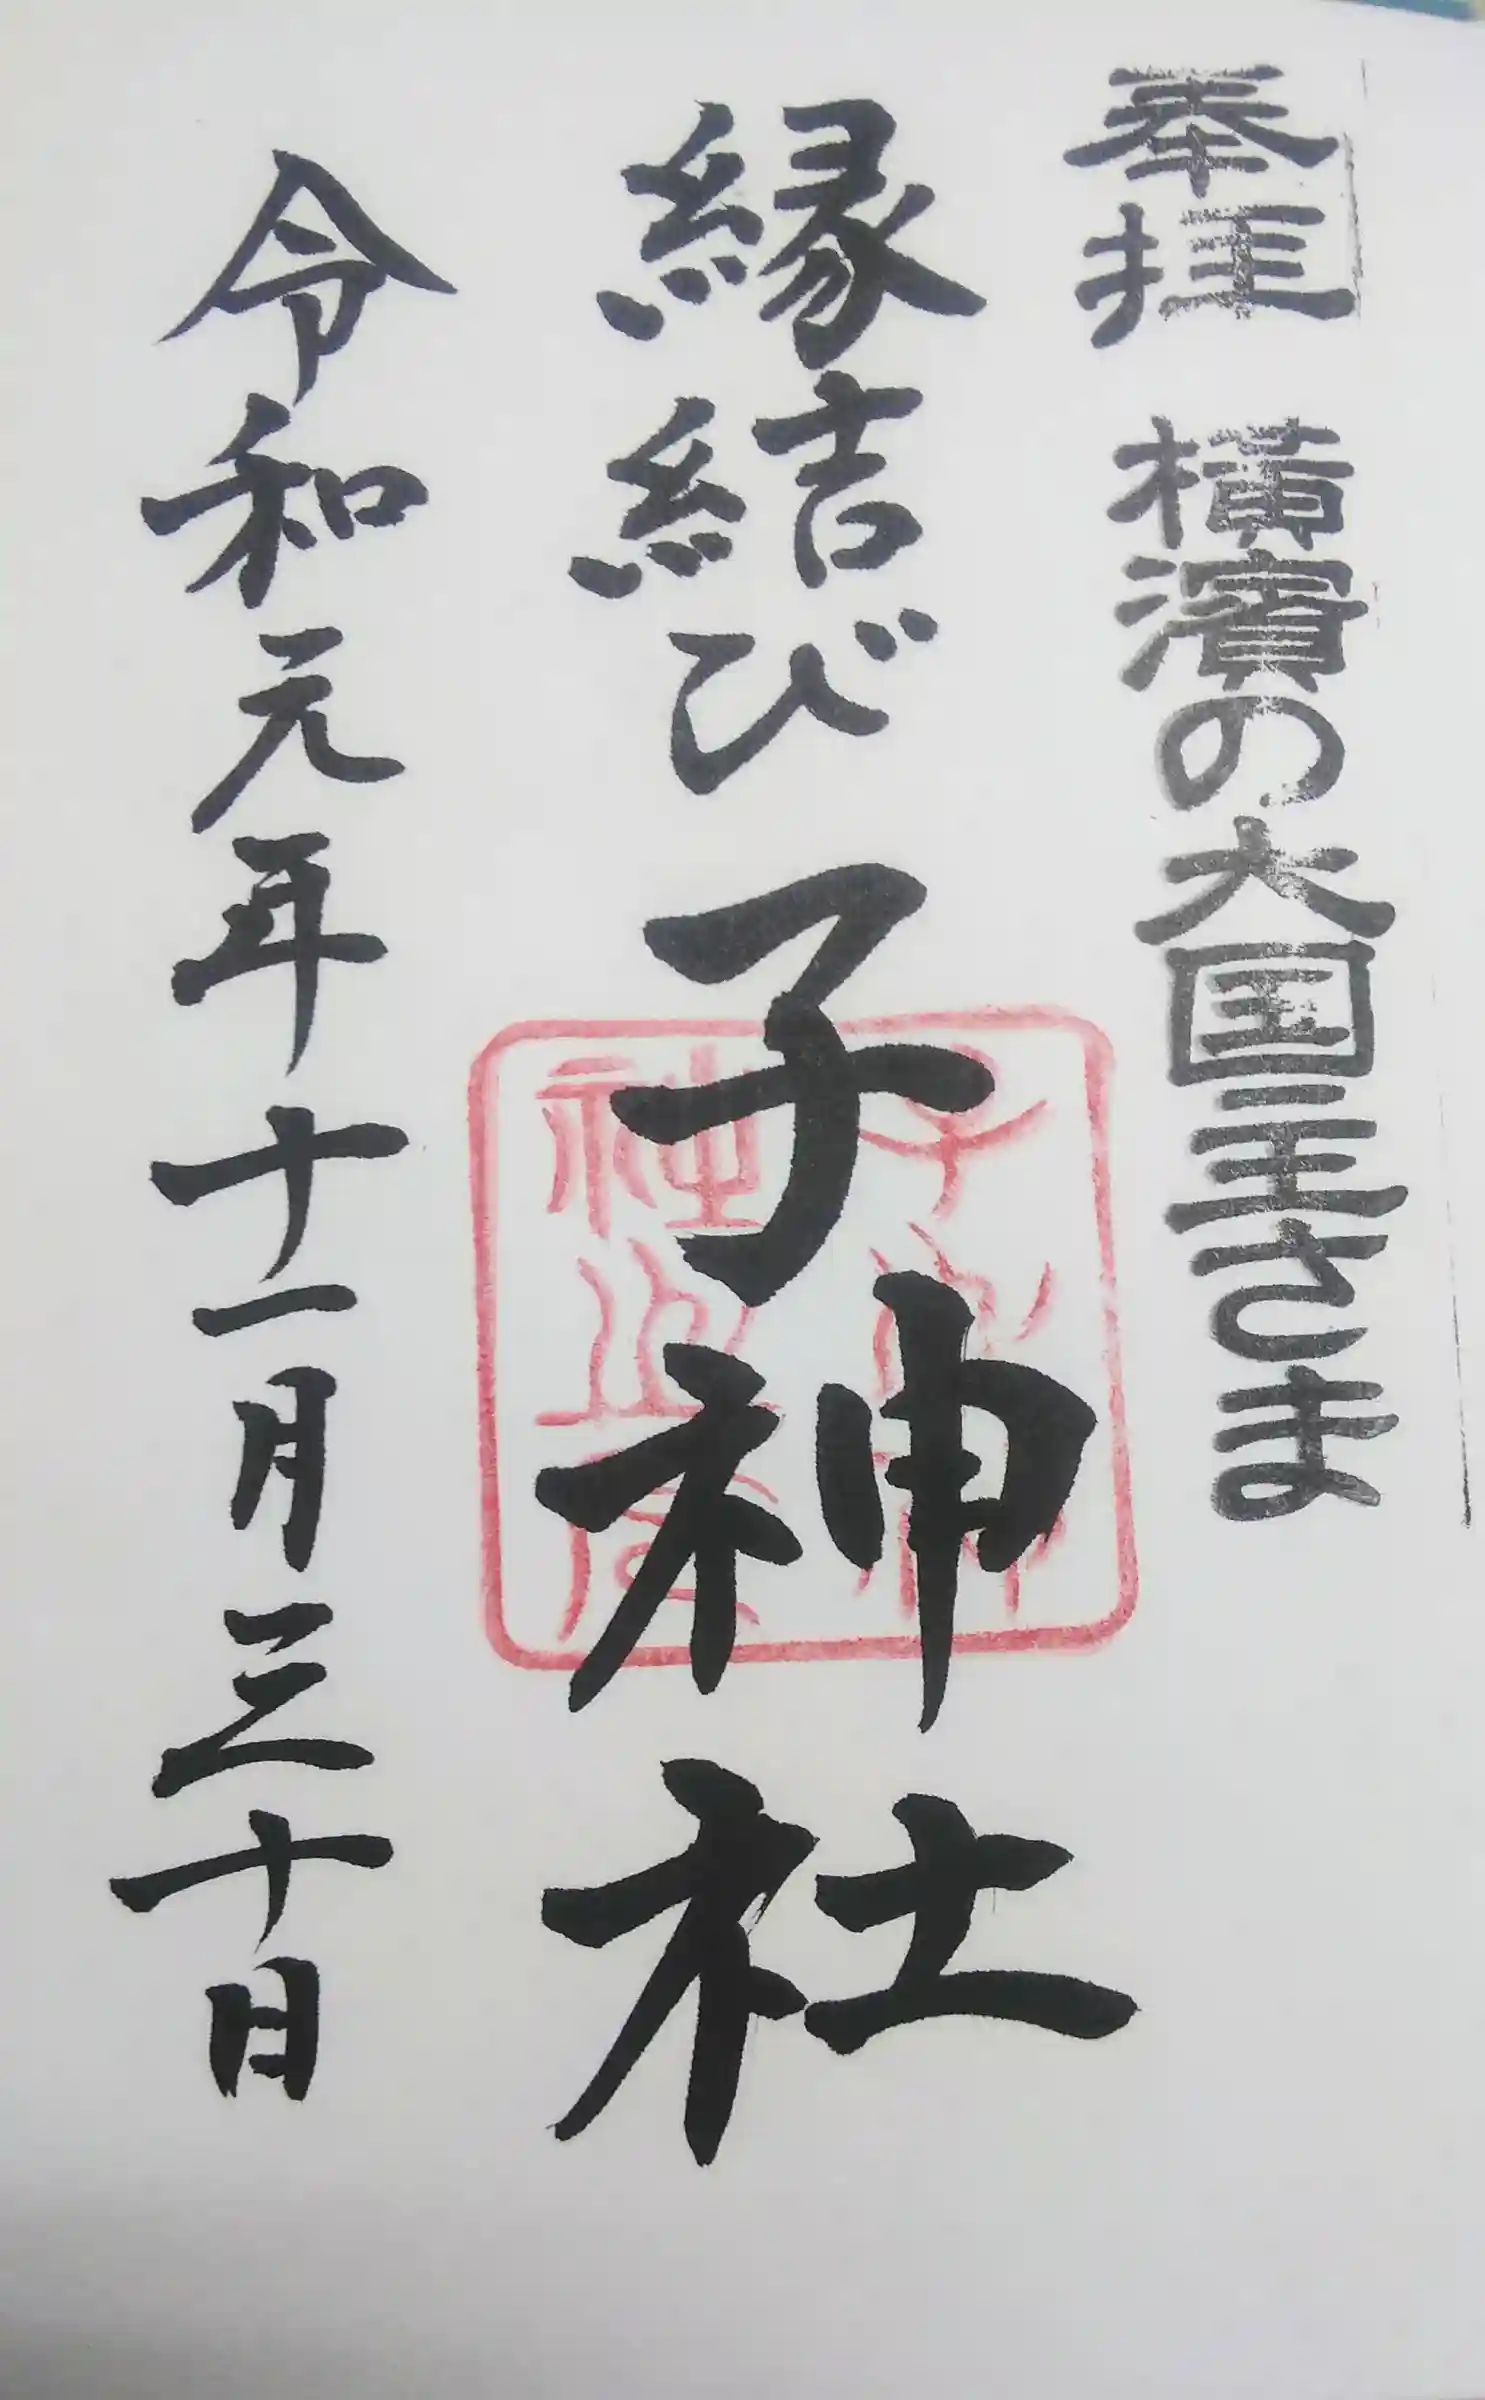 奉拝 横濱の大国主さま
縁結び 子神社
令和元年十一月三十日
子之神
社之印